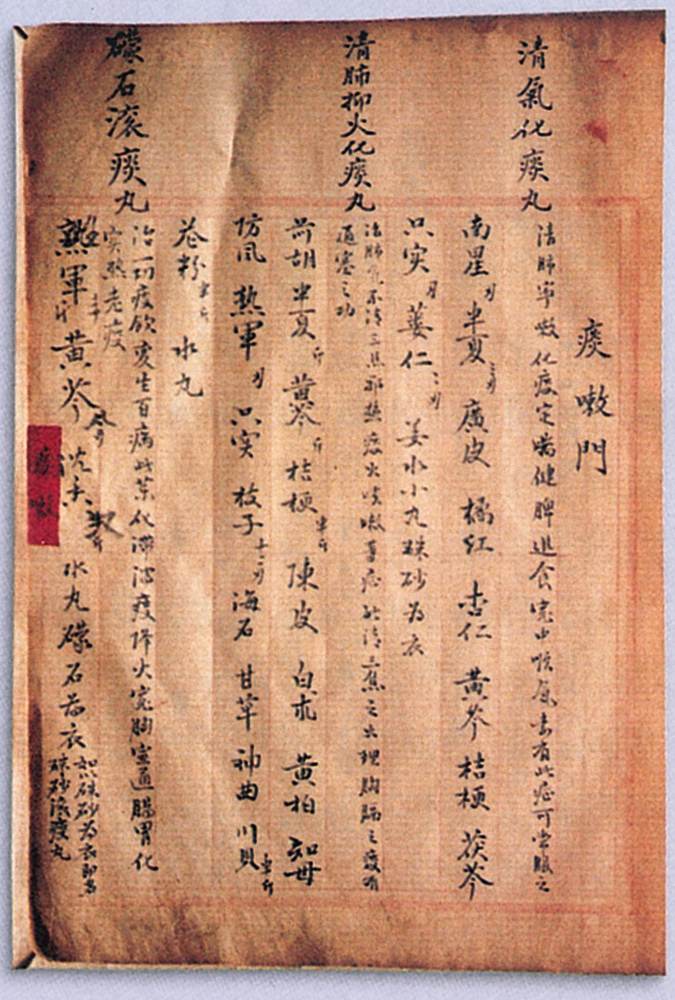 痰嗽門
清氣化痰丸
清肺寧嗽化痰定喘健脾進食寬中順氣 有此症可常服之
南星 半夏 廣皮 橘紅 杏仁 黃芩 桔梗 茯苓
只实 蔞仁 姜水小丸硃砂为衣
清肺抑火化痰丸
治肺氣不清三焦 热痰火咳嗽等症能清三焦之火理胸膈之痰有
通塞之功
前胡 半夏 黃芩 桔梗 陳皮 白朮 黃柏 知母
防风 熟軍 只实 枝子 海石 甘草 神曲 川貝
花粉 水丸
礞石滚痰丸
治一切痰飲变生百病此藥化滞 痰降火寬胸宣通腸胃化
实热老痰
熟軍 黃芩 沉香 水丸礞石为衣
如以硃砂为衣即名
硃砂滚痰丸
痰嗽